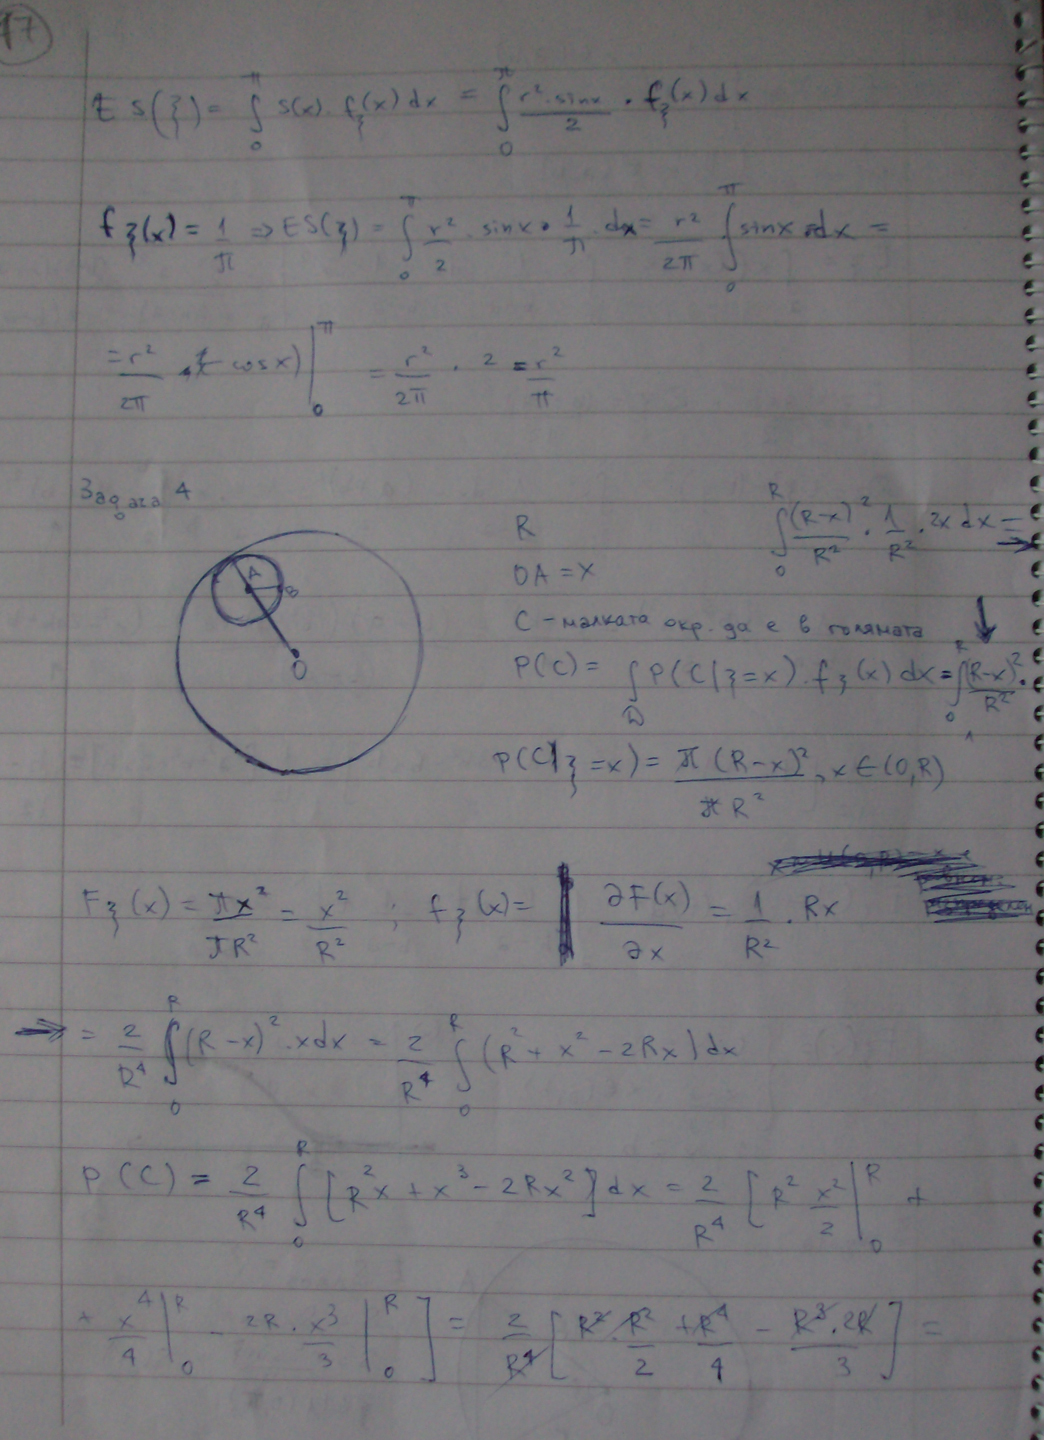 17
E S(ξ) = ∫₀^π S(x) · f_ξ(x) dx = ∫₀^π (r² · sinx)/2 · f_ξ(x) dx
f_ξ(x) = 1/π ⇒ ES(ξ) = ∫₀^π r²/2 · sinx · 1/π · dx = r²/2π ∫₀^π sinx dx =
= r²/2π · (- cosx) |₀^π = r²/2π · 2 = r²/π
Задача 4
A
B
O
R
∫₀^R (R-x)²/R² · 1/R² · 2x dx = ⇒
OA = x
C - малката окр. да е в голямата
P(C) = ∫_D P(C|ξ=x) · f_ξ(x) dx = ∫₀^R (R-x)²/R² ·
P(C|ξ=x) = π(R-x)²/πR², x ∈ (0,R)
F_ξ(x) = πx²/πR² = x²/R² ; f_ξ(x) = ∂F(x)/∂x = 1/R² · Rx
⇒ = 2/R⁴ ∫₀^R (R-x)² · x dx = 2/R⁴ ∫₀^R (R² + x² - 2Rx) dx
P(C) = 2/R⁴ ∫₀^R [R²x + x³ - 2Rx²] dx = 2/R⁴ [R² x²/2 |₀^R +
+ x⁴/4 |₀^R - 2R · x³/3 |₀^R ] = 2/R⁴ [R² · R²/2 + R⁴/4 - R³ · 2R/3] =